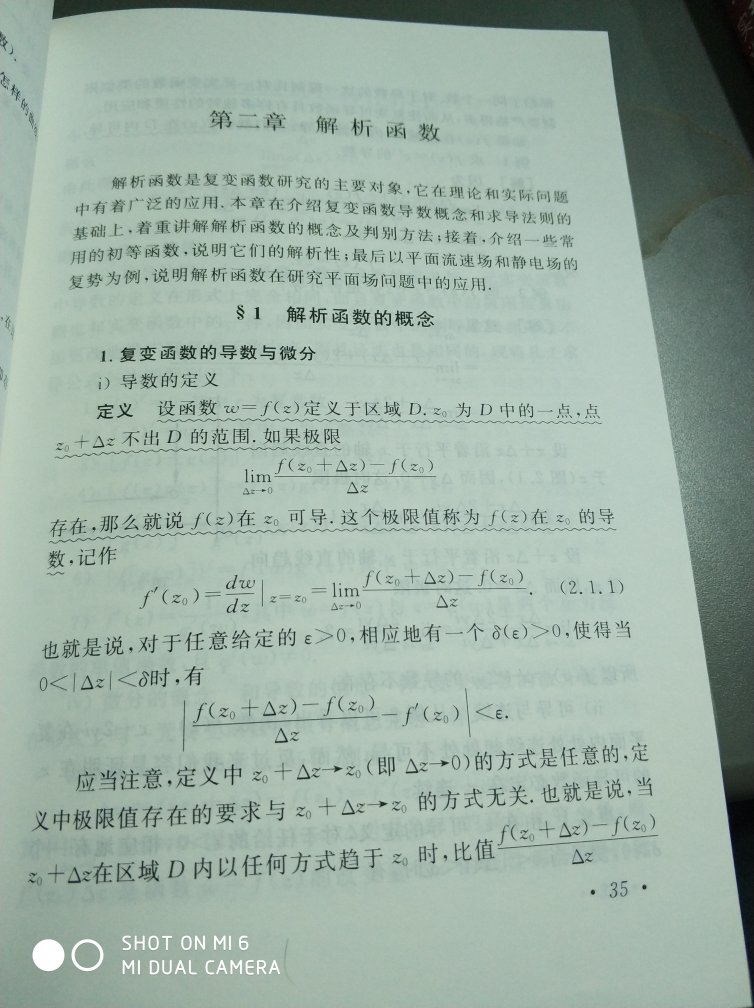 第二章 解析函数
解析函数是复变函数研究的主要对象,它在理论和实际问题
中有着广泛的应用.本章在介绍复变函数导数概念和求导法则的
基础上,着重讲解解析函数的概念及判别方法;接着,介绍一些常
用的初等函数,说明它们的解析性;最后以平面流速场和静电场的
复势为例,说明解析函数在研究平面场问题中的应用.
§1 解析函数的概念
1. 复变函数的导数与微分
i) 导数的定义
定义 设函数 w=f(z)定义于区域 D. z₀ 为 D 中的一点,点
z₀+Δz 不出 D 的范围.如果极限
lim_{Δz→0} \frac{f(z₀+Δz)-f(z₀)}{Δz}
存在,那么就说 f(z)在 z₀ 可导.这个极限值称为 f(z)在 z₀ 的导
数,记作
f′(z₀)=\frac{dw}{dz}|_{z=z₀}=lim_{Δz→0} \frac{f(z₀+Δz)-f(z₀)}{Δz}. (2.1.1)
也就是说,对于任意给定的 ε>0,相应地有一个 δ(ε)>0,使得当
0<|Δz|<δ时,有
|\frac{f(z₀+Δz)-f(z₀)}{Δz}-f′(z₀)|<ε.
应当注意,定义中 z₀+Δz→z₀(即 Δz→0)的方式是任意的,定
义中极限值存在的要求与 z₀+Δz→z₀ 的方式无关.也就是说,当
z₀+Δz在区域 D 内以任何方式趋于 z₀ 时,比值\frac{f(z₀+Δz)-f(z₀)}{Δz}
· 35 ·
SHOT ON MI 6
MI DUAL CAMERA